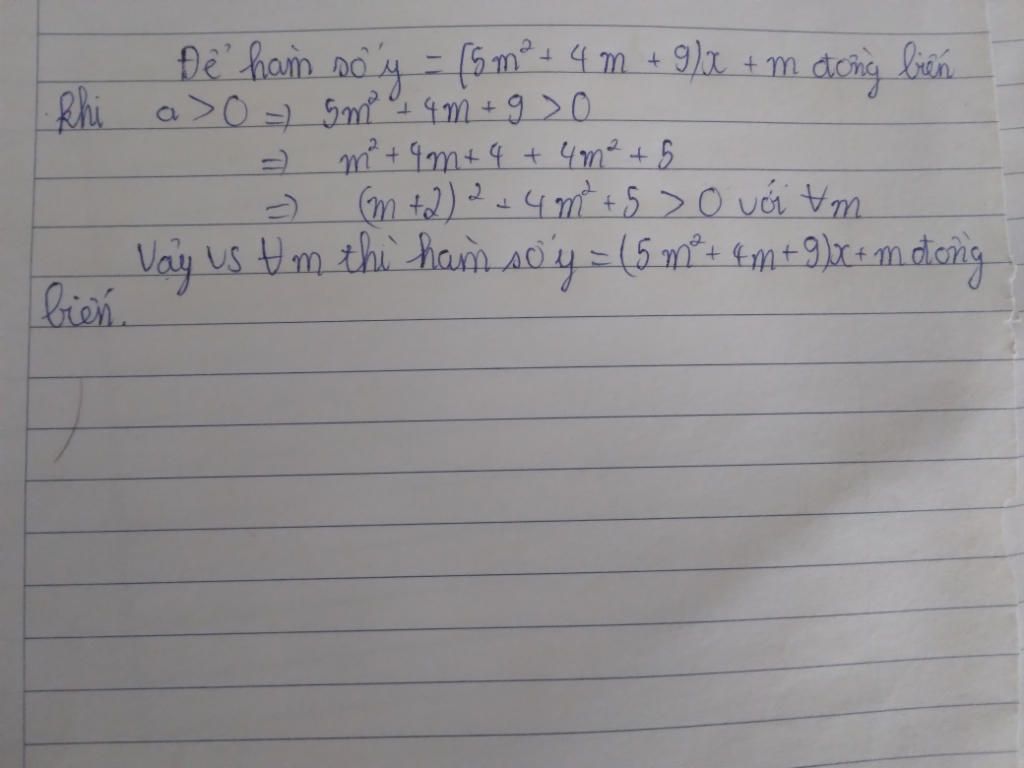 Để hàm số y = (5m² + 4m + 9)x + m đồng biến
khi a > 0 => 5m² + 4m + 9 > 0
=> m² + 4m + 4 + 4m² + 5
=> (m + 2)² + 4m² + 5 > 0 với ∀m
Vậy vs ∀m thì hàm số y = (5m² + 4m + 9)x + m đồng
biến.